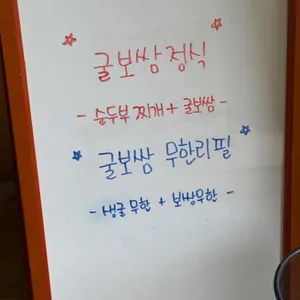 굴보쌈정식
- 순두부찌개 + 굴보쌈 -
굴보쌈 무한리필
- 생굴무한 + 보쌈무한 -